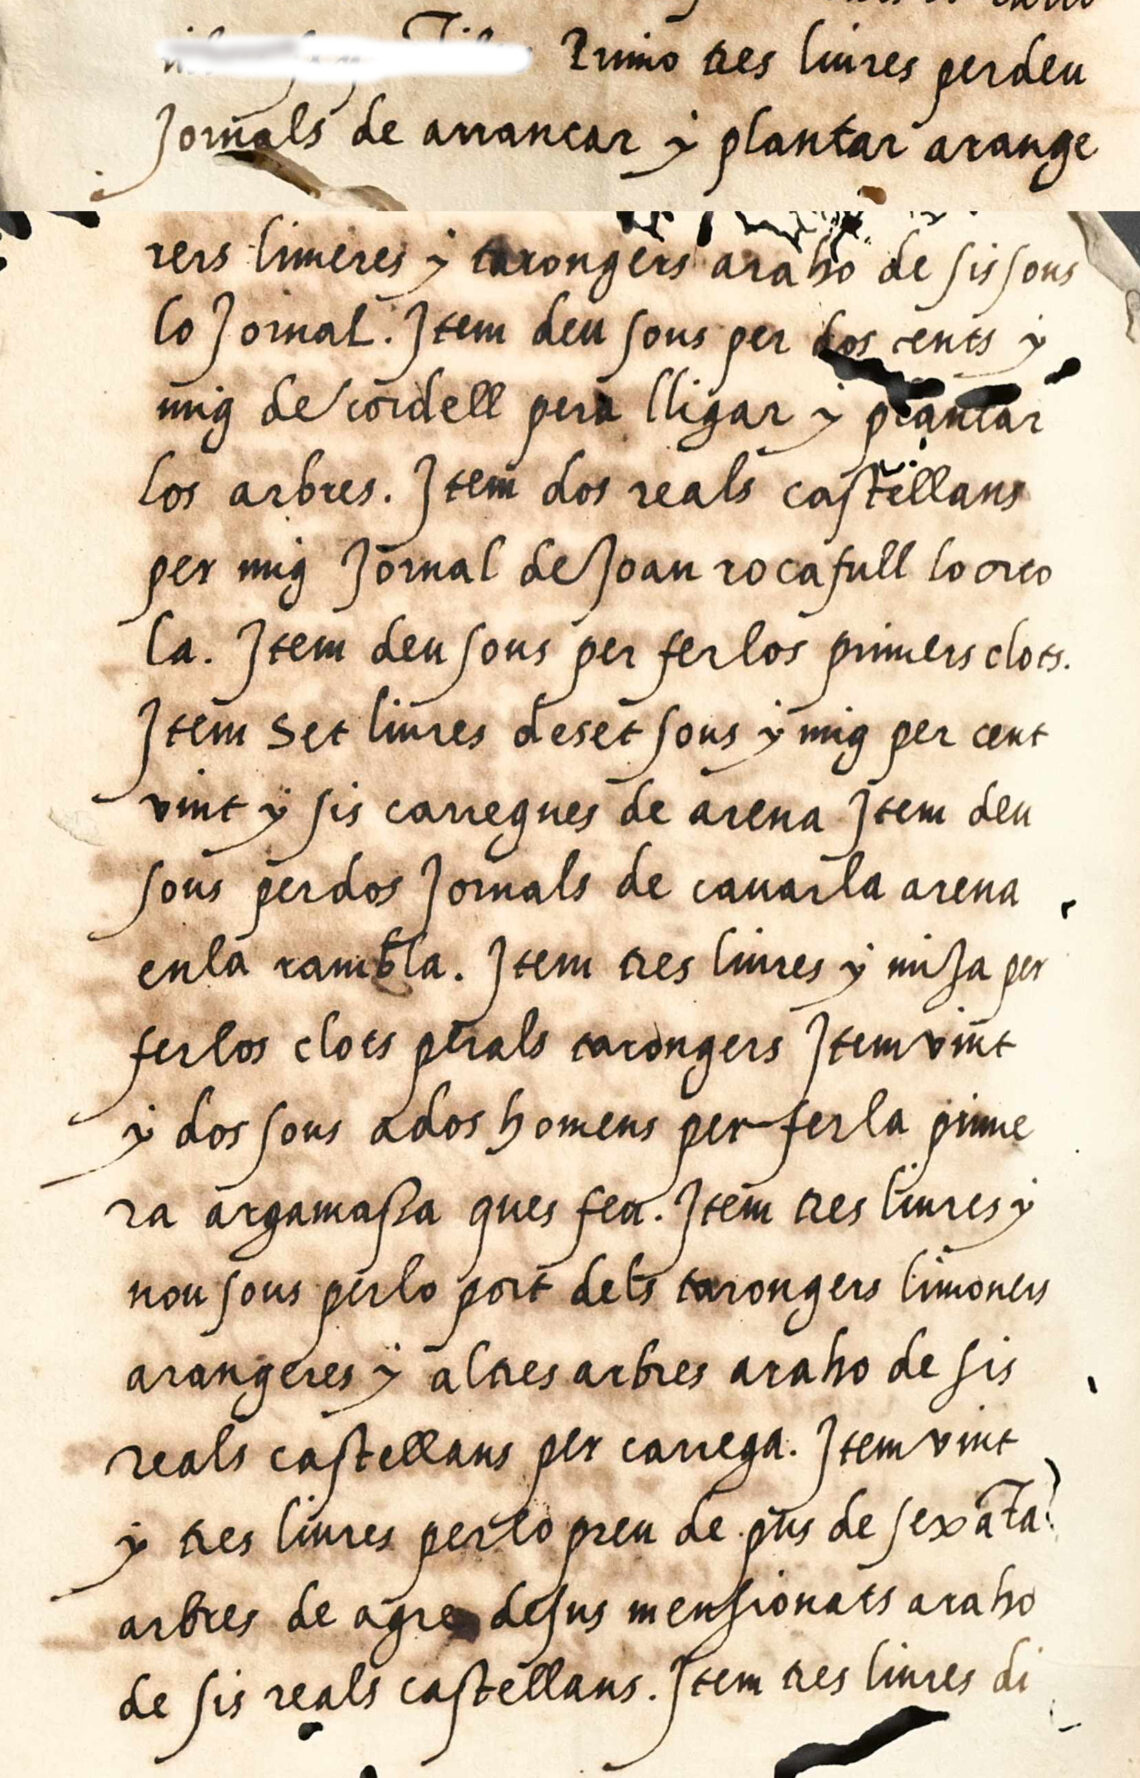 Primo tres liures per deu
Jornals de arrancar y plantar arange
rers limeres y tarongers araho de sis sous
lo Jornal. Item deu sous per dos cents y
mig de cordell pera lligar y plantar
los arbres. Item dos reals castellans
per mig Jornal de Joan rocafull lo creo
la. Item deu sous per fer los primers clots.
Item Set liures deset sous y mig per cent
vint y sis carregues de arena Item deu
sous per dos Jornals de cauar la arena
en la rambla. Item tres liures y miJa per
fer los clots perals tarongers Item vint
y dos sous a dos homens per fer la prime
ra argamassa ques feu. Item tres liures y
nou sous per lo port dels tarongers limoners
arangeres y altres arbres araho de sis
reals castellans per carrega. Item vint
y tres liures per lo preu de pus de sexāta
arbres de agre desus mensionats araho
de sis reals castellans. Item tres liures di